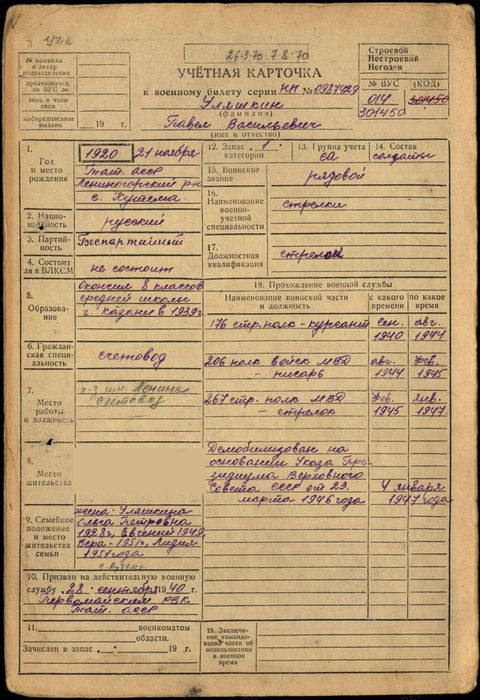 26-3-70 7-8-70
УЧЁТНАЯ КАРТОЧКА
к военному билету серии НП № 0987029
Уляшкин
(фамилия)
Павел Васильевич
(имя и отчество)
№ команды и литер подразделения
предназначен по ВУС №
день и часы явки
мобпредписание выдано 19 г.
Строевой
Нестроевой
Негоден
№ ВУС (КОД)
014 301450
301450
1. Год и место рождения
1920 21 ноября
Тат. асср
Лениногорский р-н
с. Кутема
2. Национальность русский
3. Партийность Беспартийный
4. Состоит ли в ВЛКСМ не состоит
5. Образование
Окончил 8 классов
средней школы
г. Казани в 1939г
6. Гражданская специальность счетовод
7. Место работы и должность
к-з им. Ленина
счетовод
8. Место жительства
9. Семейное положение и место жительства семьи
жена: Уляшкина
Ольга Петровна
1928г, Евгений 1949,
Вера-1951г, Лидия
1957года
10. Призван на действительную военную
службу „28" сентября 1940 г.
Первомайским РВК
Тат. асср
11. военкоматом
области.
Зачислен в запас „ " 19 г.
12. Запас 1 категории
13. Группа учета са
14. Состав солдаты
15. Воинское звание рядовой
16. Наименование военно-учетной специальности стрелки
17. Должностная квалификация стрелок
18. Прохождение военной службы
Наименование воинской части и должность
с какого времени
по какое время
176 стр. полк - курсант сен. 1940 авг. 1944
206 полк войск МВД - писарь авг. 1944 фев. 1945
267 стр. полк МВД - стрелок фев. 1945 янв. 1947
Демобилизован на
основании Указа Пре-
зидиума Верховного
Совета СССР от 23. 4 января
марта 1946 года 1947 года
19. Заключение командования части об использовании в военное время